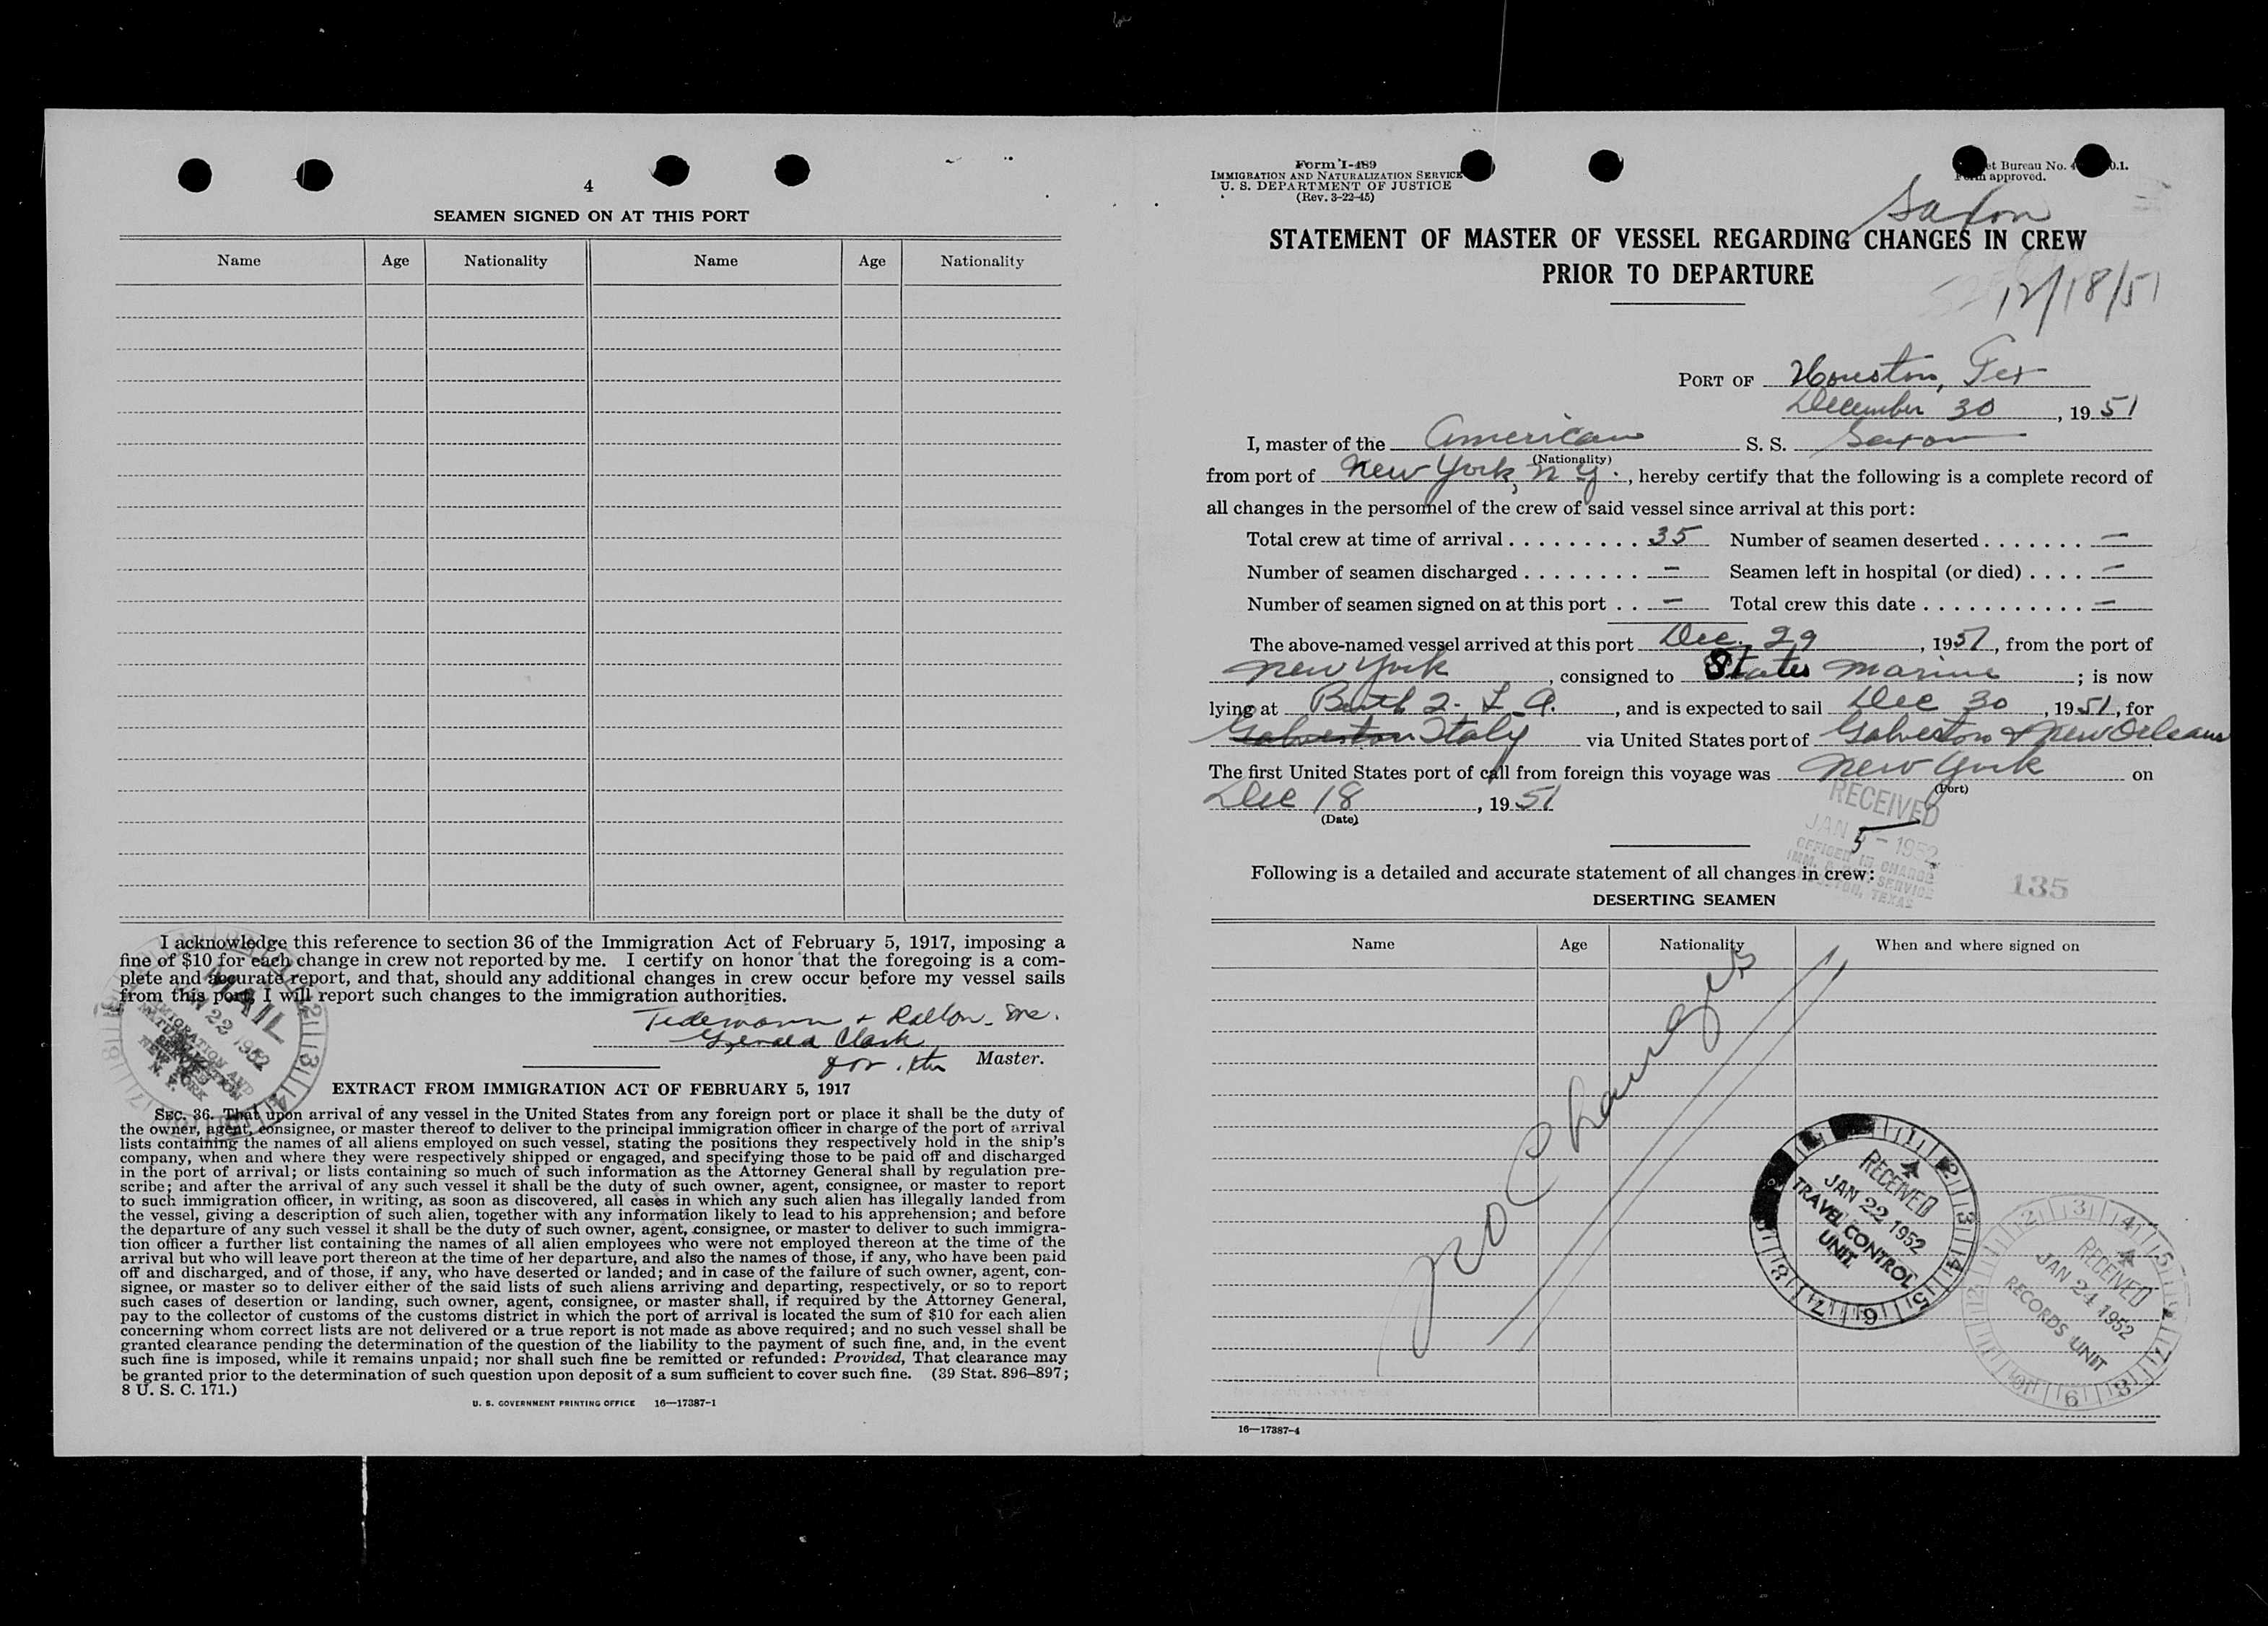 4
SEAMEN SIGNED ON AT THIS PORT
Name Age Nationality Name Age Nationality
I acknowledge this reference to section 36 of the Immigration Act of February 5, 1917, imposing a
fine of $10 for each change in crew not reported by me. I certify on honor that the foregoing is a com-
plete and accurate report, and that, should any additional changes in crew occur before my vessel sails
from this port, I will report such changes to the immigration authorities.
MAIL
JAN 22 1952
IMMIGRATION AND
NATURALIZATION
SERVICE
NEW YORK
N. Y.
Tedemann + Dalton Inc.
Gerald Clark
for the Master.
EXTRACT FROM IMMIGRATION ACT OF FEBRUARY 5, 1917
SEC. 36. That upon arrival of any vessel in the United States from any foreign port or place it shall be the duty of
the owner, agent, consignee, or master thereof to deliver to the principal immigration officer in charge of the port of arrival
lists containing the names of all aliens employed on such vessel, stating the positions they respectively hold in the ship's
company, when and where they were respectively shipped or engaged, and specifying those to be paid off and discharged
in the port of arrival; or lists containing so much of such information as the Attorney General shall by regulation pre-
scribe; and after the arrival of any such vessel it shall be the duty of such owner, agent, consignee, or master to report
to such immigration officer, in writing, as soon as discovered, all cases in which any such alien has illegally landed from
the vessel, giving a description of such alien, together with any information likely to lead to his apprehension; and before
the departure of any such vessel it shall be the duty of such owner, agent, consignee, or master to deliver to such immigra-
tion officer a further list containing the names of all alien employees who were not employed thereon at the time of the
arrival but who will leave port thereon at the time of her departure, and also the names of those, if any, who have been paid
off and discharged, and of those, if any, who have deserted or landed; and in case of the failure of such owner, agent, con-
signee, or master so to deliver either of the said lists of such aliens arriving and departing, respectively, or so to report
such cases of desertion or landing, such owner, agent, consignee, or master shall, if required by the Attorney General,
pay to the collector of customs of the customs district in which the port of arrival is located the sum of $10 for each alien
concerning whom correct lists are not delivered or a true report is not made as above required; and no such vessel shall be
granted clearance pending the determination of the question of the liability to the payment of such fine, and, in the event
such fine is imposed, while it remains unpaid; nor shall such fine be remitted or refunded: Provided, That clearance may
be granted prior to the determination of such question upon deposit of a sum sufficient to cover such fine. (39 Stat. 896–897;
8 U. S. C. 171.)
U. S. GOVERNMENT PRINTING OFFICE 16—17387-1
Form I-489
IMMIGRATION AND NATURALIZATION SERVICE
U. S. DEPARTMENT OF JUSTICE
(Rev. 3-22-45)
et Bureau No. 4 0.1.
approved.
Saxon
STATEMENT OF MASTER OF VESSEL REGARDING CHANGES IN CREW
PRIOR TO DEPARTURE
12/18/51
PORT OF Houston, Tex
December 30, 1951
I, master of the American S. S. Saxon
(Nationality)
from port of New York, N Y., hereby certify that the following is a complete record of
all changes in the personnel of the crew of said vessel since arrival at this port:
Total crew at time of arrival . . . . . . . . . 35 Number of seamen deserted . . . . . . . —
Number of seamen discharged . . . . . . . . — Seamen left in hospital (or died) . . . . —
Number of seamen signed on at this port . . — Total crew this date . . . . . . . . . . . —
The above-named vessel arrived at this port Dec. 29, 1951, from the port of
New York, consigned to States Marine; is now
lying at Berth 2. L.A., and is expected to sail Dec 30, 1951, for
Galveston Italy via United States port of Galveston & New Orleans
The first United States port of call from foreign this voyage was New York on
(Port)
Dec 18, 1951
(Date)
RECEIVED
JAN 5 – 1952
OFFICER IN CHARGE
IMM. & NAT. SERVICE
HOUSTON, TEXAS
135
Following is a detailed and accurate statement of all changes in crew:
DESERTING SEAMEN
Name Age Nationality When and where signed on
No Changes
RECEIVED
JAN 22 1952
TRAVEL CONTROL
UNIT
RECEIVED
JAN 24 1952
RECORDS UNIT
16—17387-4